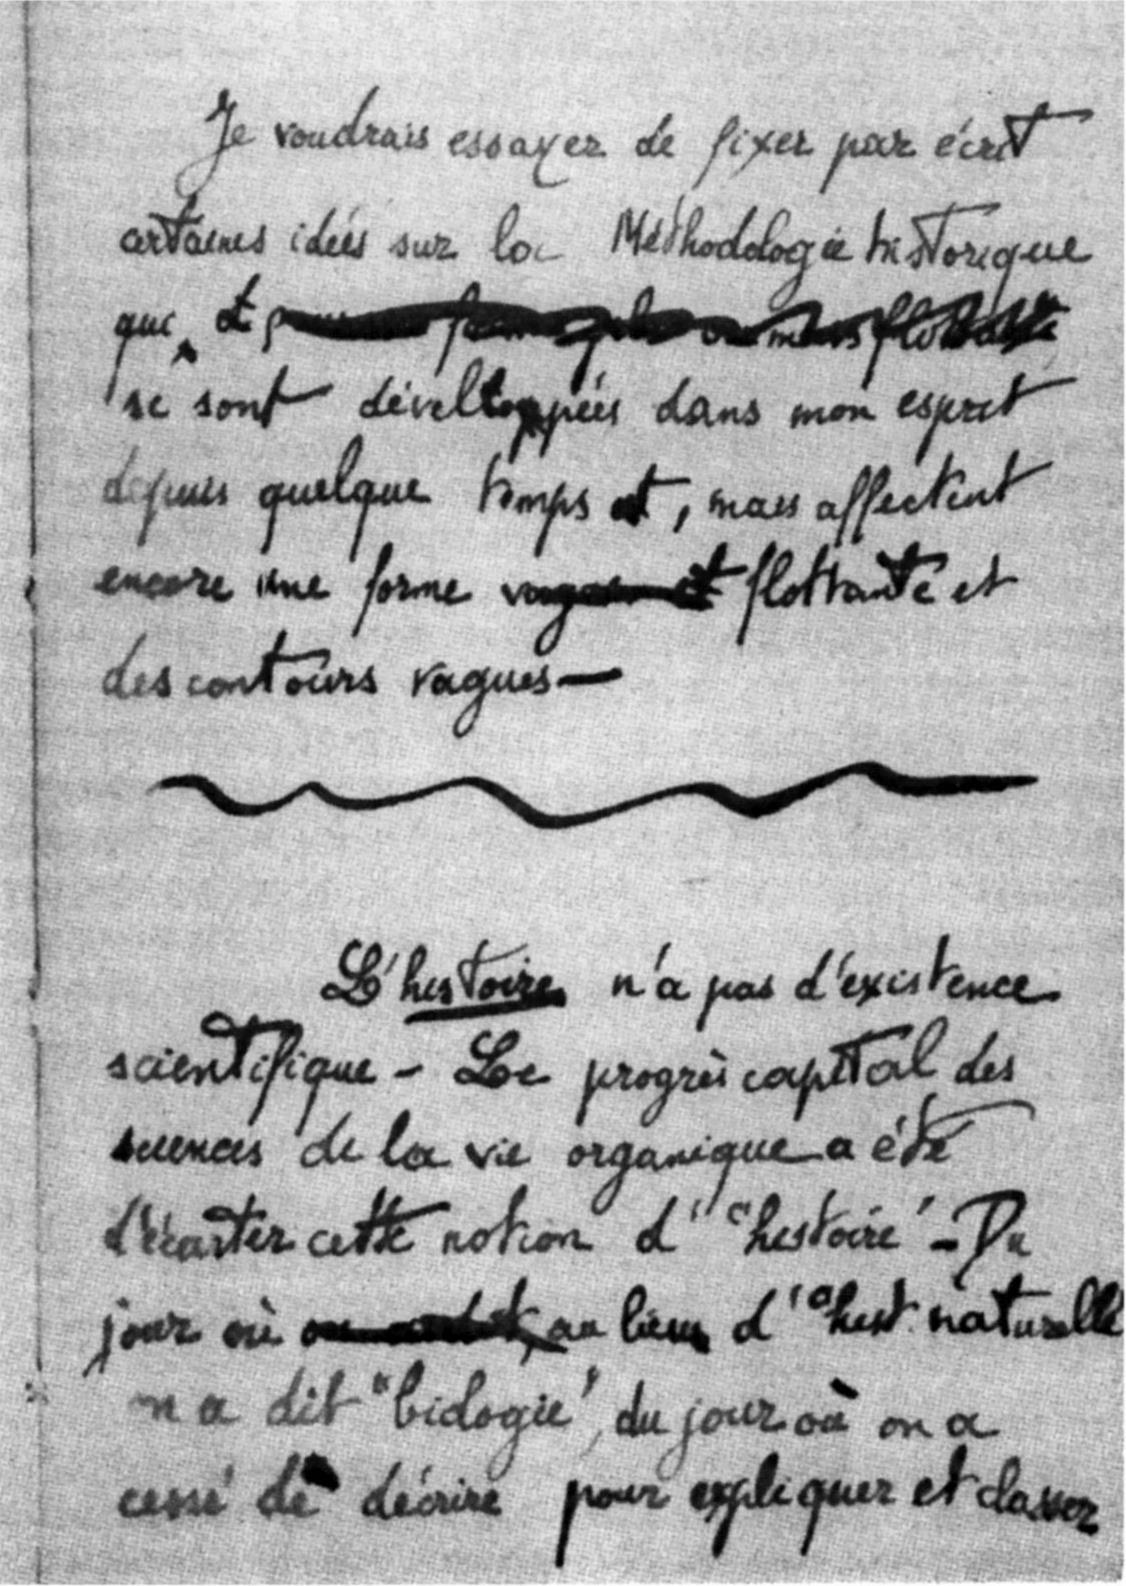 Je voudrais essayer de fixer par écrit
certaines idées sur la Méthodologie historique
qui, et
se sont développées dans mon esprit
depuis quelque temps et, mais affectent
encore une forme vagues et flottante et
des contours vagues —
L'histoire n'a pas d'existence
scientifique – Le progrès capital des
sciences de la vie organique a été
d'écarter cette notion d' "histoire" – Du
jour où au lieu d' "hist. naturelle
on a dit "biologie", du jour où on a
cessé de décrire pour expliquer et classer